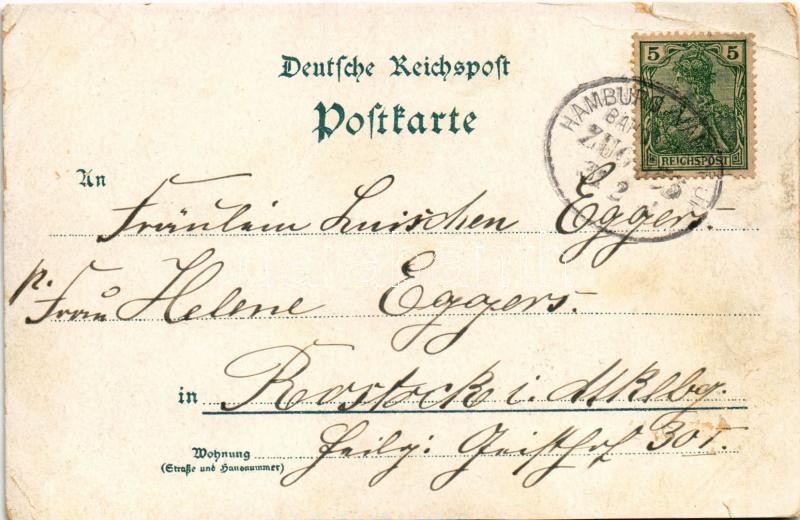 Deutsche Reichspost
Postkarte
5 5
REICHSPOST
HAMBURG
BAH
ZUG
2
An
Fräulein Luischen Eggers.
p. Frau Helene Eggers.
in Rostock i. Mklbg.
Wohnung Heilg. Geisthof
(Straße und Hausnummer)